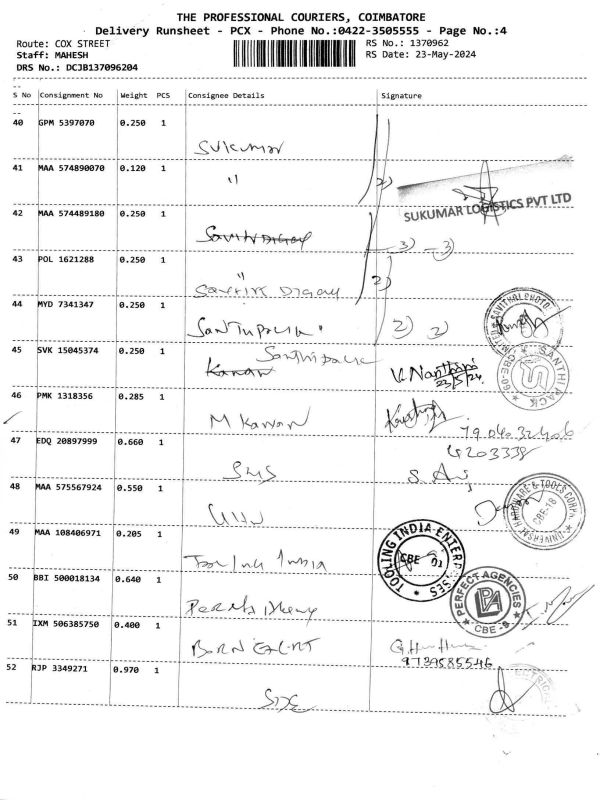 THE PROFESSIONAL COURIERS, COIMBATORE
Delivery Runsheet - PCX - Phone No.:0422-3505555 - Page No.:4
Route: COX STREET RS No.: 1370962
Staff: MAHESH RS Date: 23-May-2024
DRS No.: DCJB137096204
S No Consignment No Weight PCS Consignee Details Signature
40 GPM 5397070 0.250 1
Sukumar
41 MAA 574890070 0.120 1
" 2)
SUKUMAR LOGISTICS PVT LTD
42 MAA 574489180 0.250 1
3) 3)
43 POL 1621288 0.250 1
" 2)
44 MYD 7341347 0.250 1
2) 2)
45 SVK 15045374 0.250 1
Santhipack
Kanan V. Nanthini
23/5/24.
SANTHI PACK
46 PMK 1318356 0.285 1
M Kannan
47 EDQ 20897999 0.660 1
SMS
48 MAA 575567924 0.550 1
UNIVERSAL HARDWARE & TOOLS CORPN.
CBE-18
49 MAA 108406971 0.205 1
Tooling India
TOOLING INDIA ENTERPRISES
CBE 01
50 BBI 500018134 0.640 1
PERFECT AGENCIES
PA
CBE - 9
51 IXM 506385750 0.400 1
9739585546
52 RJP 3349271 0.970 1